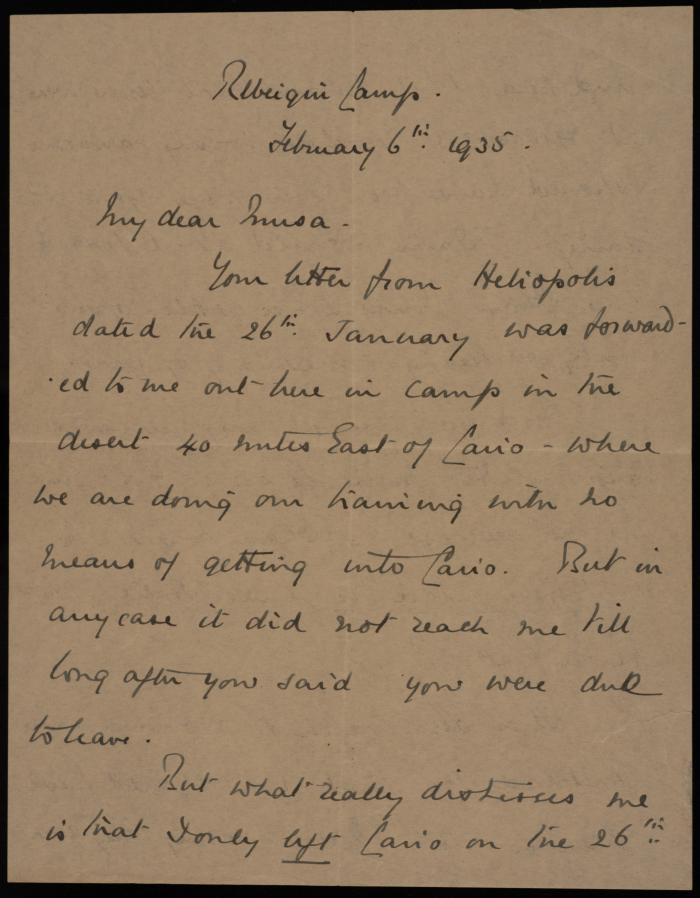 Rbeiqui Camp.
February 6th. 1935.
My dear Musa.
Your letter from Heliopolis
dated the 26th. January was forward-
ed to me out here in camp in the
desert 40 miles East of Cairo - where
we are doing our training with no
means of getting into Cairo. But in
any case it did not reach me till
long after you said you were due
to leave.
But what really distresses me
is that I only left Cairo on the 26th.